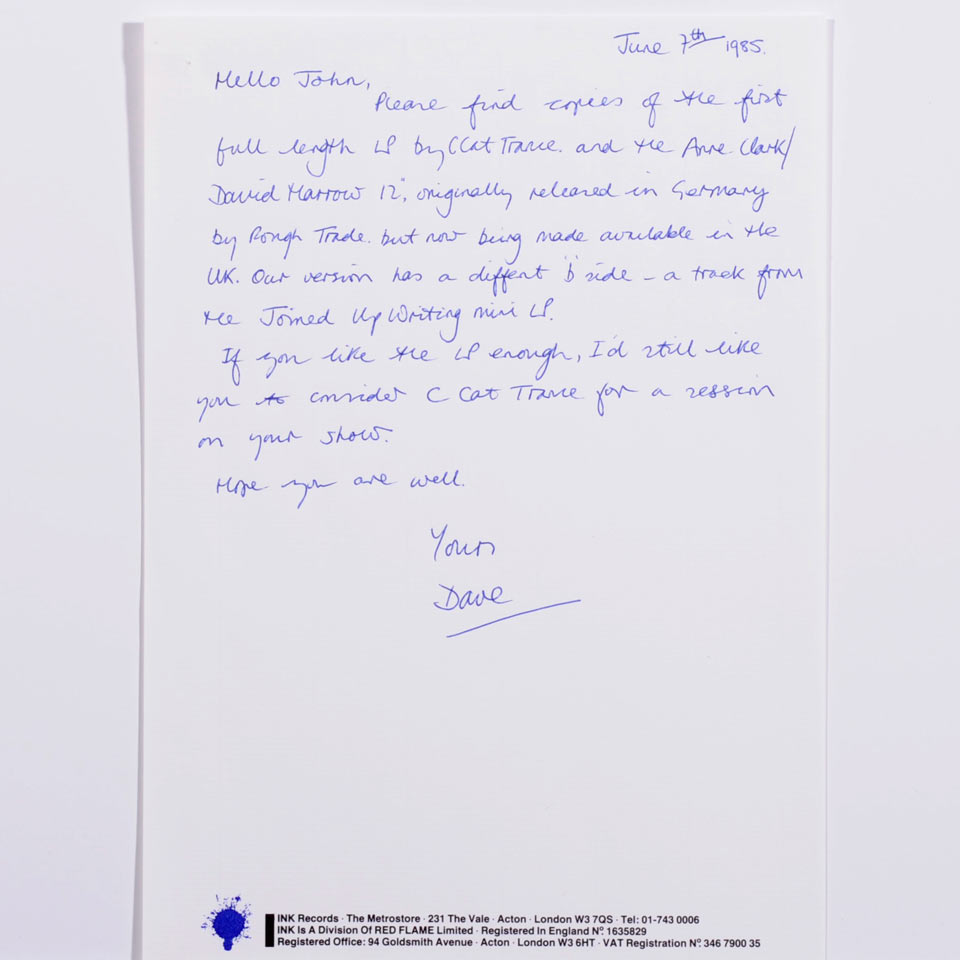 June 7th 1985.
Hello John,
Please find copies of the first
full length LP by C Cat Trance. and the Anne Clark/
David Harrow 12", originally released in Germany
by Rough Trade. but now being made available in the
UK. Our version has a diffent 'b' side - a track from
the Joined Up Writing mini LP.
If you like the LP enough, I'd still like
you to consider C Cat Trance for a session
on your show.
Hope you are well.
Yours
Dave
INK Records · The Metrostore · 231 The Vale · Acton · London W3 7QS · Tel: 01-743 0006
INK Is A Division Of RED FLAME Limited · Registered In England Nº 1635829
Registered Office: 94 Goldsmith Avenue · Acton · London W3 6HT · VAT Registration Nº 346 7900 35